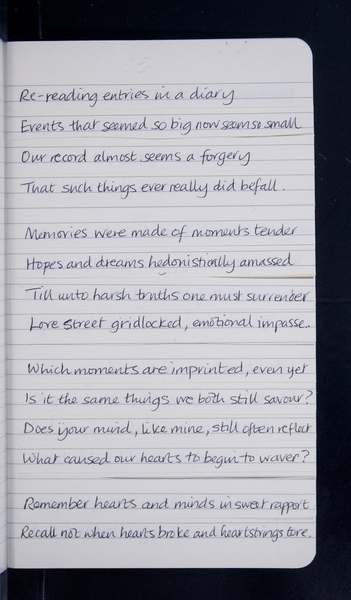 Re-reading entries in a diary
Events that seemed so big now seem so small
Our record almost seems a forgery
That such things ever really did befall.
Memories were made of moments tender
Hopes and dreams hedonistically amassed
Till unto harsh truths one must surrender
Love Street gridlocked, emotional impasse..
Which moments are imprinted, even yet
Is it the same things we both still savour?
Does your mind, like mine, still often reflect
What caused our hearts to begin to waver?
Remember hearts and minds in sweet rapport
Recall not when hearts broke and heartstrings tore.